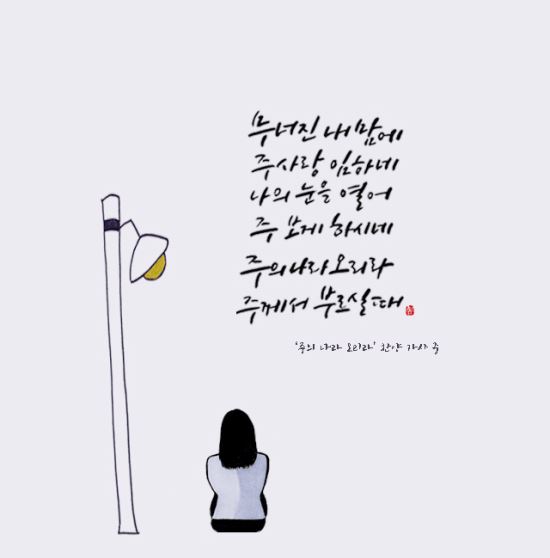 무너진 내 맘에
주 사랑 임하네
나의 눈을 열어
주 보게 하시네
주의 나라 오리라
주께서 부르실 때
'주의 나라 오리라' 찬양 가사 中